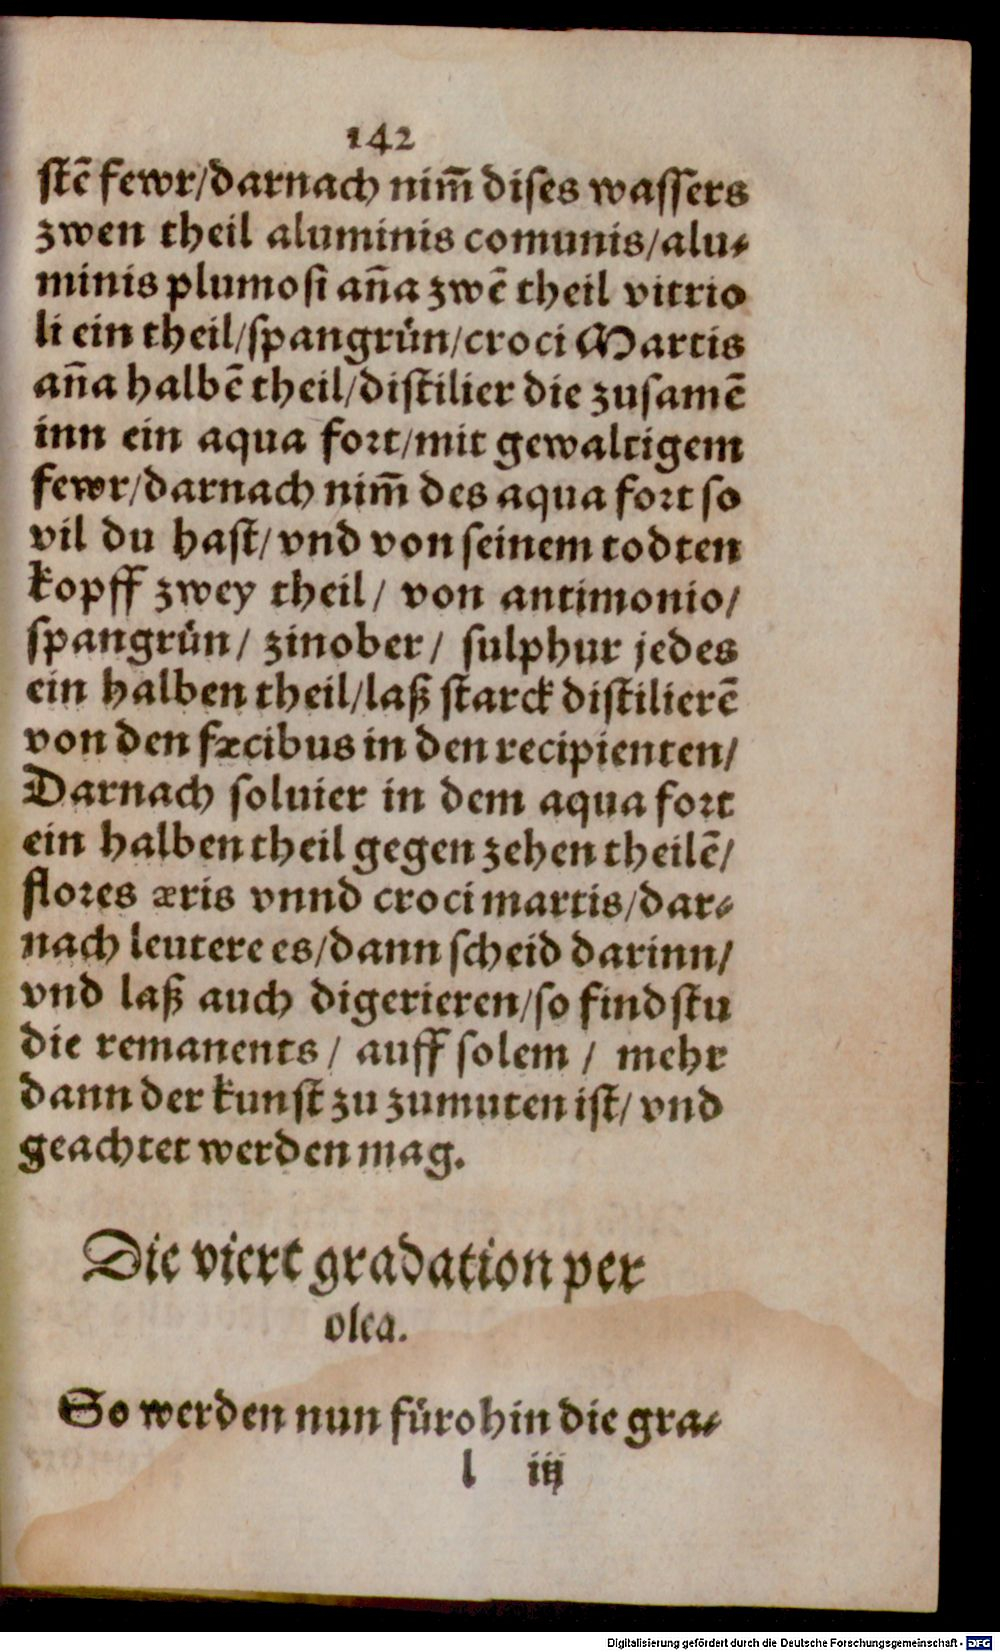 142
stẽ fewr/darnach nim̃ dises wassers
zwen theil aluminis comunis/alu-
minis plumosi an̄a zwẽ theil vitrio
li ein theil/spangrün/croci Martis
an̄a halbẽ theil/distilier die zusamẽ
inn ein aqua fort/mit gewaltigem
fewr/darnach nim̃ des aqua fort so
vil du hast/vnd von seinem todten
kopff zwey theil/ von antimonio/
spangrün/ zinober/ sulphur jedes
ein halben theil/laß starck distilierẽ
von den fæcibus in den recipienten/
Darnach soluier in dem aqua fort
ein halben theil gegen zehen theilẽ/
flores æris vnnd croci martis/dar-
nach leutere es/dann scheid darinn/
vnd laß auch digerieren/so findstu
die remanents/ auff solem/ mehr
dann der kunst zu zumuten ist/ vnd
geachtet werden mag.
Die viert gradation per
olea.
So werden nun fürohin die gra-
l iij
Digitalisierung gefördert durch die Deutsche Forschungsgemeinschaft - DFG